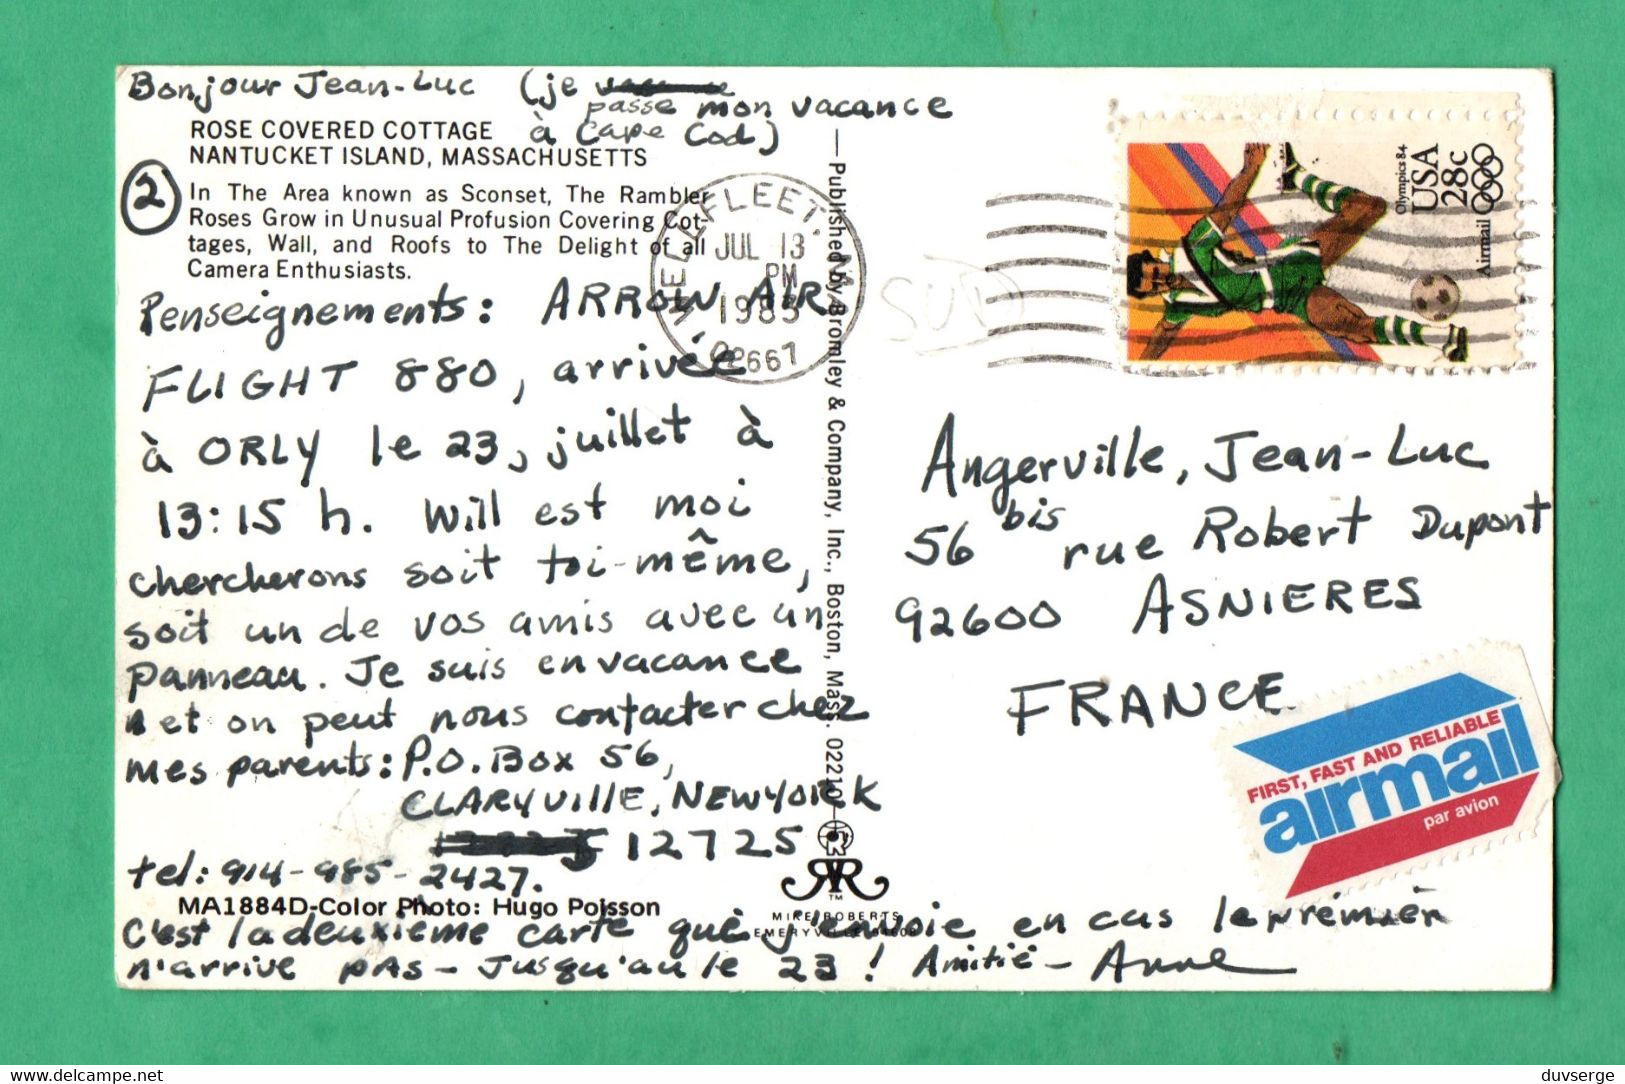 Bonjour Jean-Luc (je
passe mon vacance
à Cape Cod)
ROSE COVERED COTTAGE
NANTUCKET ISLAND, MASSACHUSETTS
2
In The Area known as Sconset, The Rambler
Roses Grow in Unusual Profusion Covering Cot-
tages, Wall, and Roofs to The Delight of all
Camera Enthusiasts.
Renseignements: ARROW AIR
FLIGHT 880, arrivée
à ORLY le 23, juillet à
13:15 h. Will est moi
chercherons soit toi-même,
soit un de vos amis avec un
panneau. Je suis en vacance
et on peut nous contacter chez
mes parents: P.O. Box 56,
CLARYVILLE, NEW YORK
12725
tel: 914-985-2427.
MA1884D-Color Photo: Hugo Poisson
C'est la deuxième carte que j'envoie en cas le premier
n'arrive pas - Jusqu'au le 23! Amitié - Anne
Published by Bromley & Company, Inc., Boston, Mass. 02210
MIKE ROBERTS
EMERYVILLE 94608
R
TM
WELLFLEET, MA
JUL 13
PM
1983
02667
SUD
Olympics 84
USA
28c
Airmail
Angerville, Jean-Luc
56 bis rue Robert Dupont
92600 ASNIERES
FRANCE
FIRST, FAST AND RELIABLE
airmail
par avion
delcampe.net
duvserge